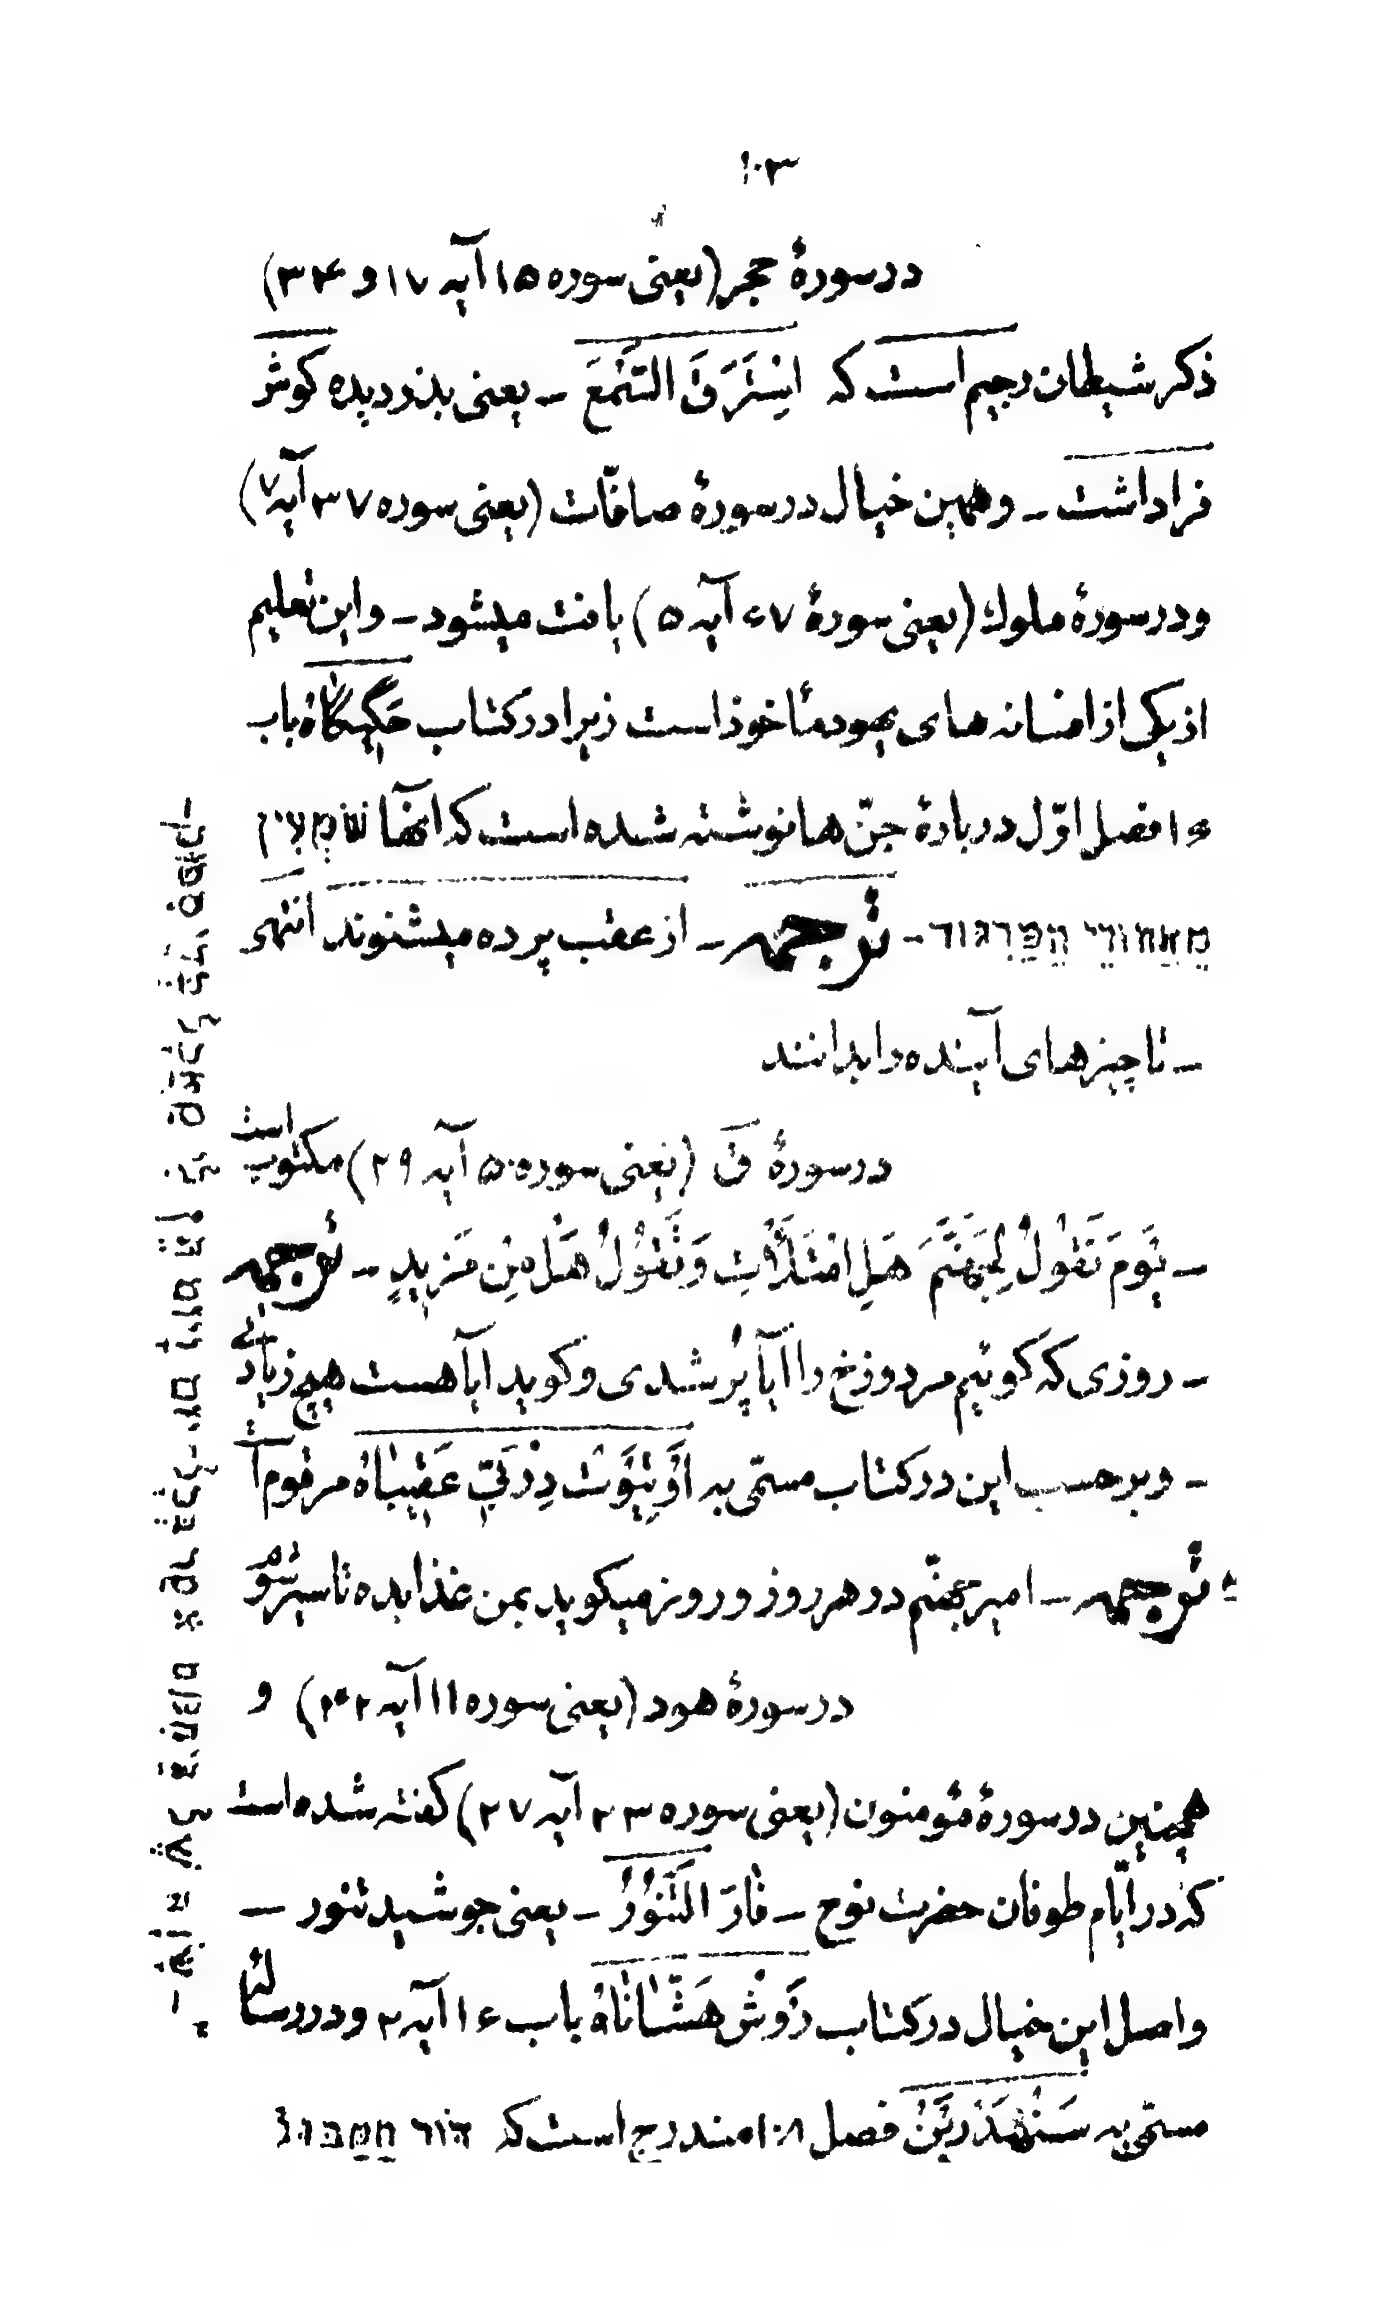 ۱۰۳
در سورهٔ حجر (یعنی سوره ۱۵ آیه ۱۷ و ۳۴)
ذکر شیطان رجیم است که اِسْتَرَقَ السَّمْعَ - یعنی بدزدیده کوش
فراداشت - وهمین خیال در سورهٔ صافّات (یعنی سوره ۳۷ آیه ۷)
ودر سورهٔ ملوك (یعنی سورهٔ ۶۷ آیه ۵) یافت میشود - واین تعلیم
از یکی از افسانه های یهود مأخوذ است زیرا در کتاب حَگِیگاهْ باب
۱۶ فصل اوّل دربارهٔ جنّ ها نوشته شده است که آنها שׁוֹמְעִין
מֵאֲחוֹרֵי הַפַּרְגּוֹד - ترجمه - از عقب پرده میشنوند انتهی
- تا چیزهای آینده را بدانند
در سورهٔ قَ (یعنی سوره ۵۰ آیه ۲۹) مکتوب است
- یَوْمَ نَقُولُ لِجَهَنَّمَ هَلِ امْتَلَأْتِ وَتَقُولُ هَلْ مِن مَزِیدٍ - ترجمه
- روزی که کوئیم مر دوزخ را آیا پُر شدی و کوید آیا هست هیچ زیادتی
- وبر حسب این در کتاب مسمّی به اُوتِیُّوتْ دِرَبِّی عَقِیبَاهْ مرقوم است
ترجمه - امیر جهنّم در هر روز و روز میکوید بمن غذا بده تا سیر شوم
در سورهٔ هود (یعنی سوره ۱۱ آیه ۴۲) و
همچنین در سورهٔ مؤمنون (یعنی سوره ۲۳ آیه ۲۷) کفته شده است
که در ایّام طوفان حضرت نوح - فَارَ التَّنُّورُ - یعنی جوشید تنور -
واصل این خیال در کتاب رُوشْ هَشَّانَاهْ باب ۱۶ آیه ۲ ودر رسالهٔ
مسمّی به سَنْهَدْرِین فصل ۱۰۸ مندرج است که דּוֹר הַמַּבּוּל